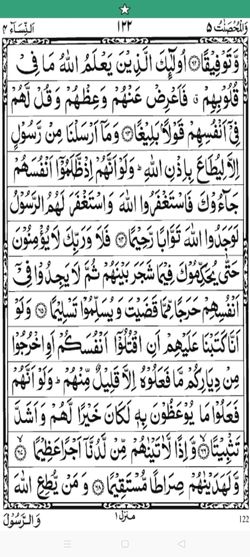 وَالْمُحْصَنٰتُ ٥ ١٢٢ اَلنِّسَآء ٤
وَّتَوْفِيْقًا ﴿٦٢﴾ اُولٰٓئِكَ الَّذِيْنَ يَعْلَمُ اللّٰهُ مَا فِيْ
قُلُوْبِهِمْ ۗ فَاَعْرِضْ عَنْهُمْ وَعِظْهُمْ وَقُلْ لَّهُمْ
فِيْٓ اَنْفُسِهِمْ قَوْلًاۢ بَلِيْغًا ﴿٦٣﴾ وَمَآ اَرْسَلْنَا مِنْ رَّسُوْلٍ
اِلَّا لِيُطَاعَ بِاِذْنِ اللّٰهِ ؕ وَلَوْ اَنَّهُمْ اِذْ ظَّلَمُوْٓا اَنْفُسَهُمْ
جَآءُوْكَ فَاسْتَغْفَرُوا اللّٰهَ وَاسْتَغْفَرَ لَهُمُ الرَّسُوْلُ
لَوَجَدُوا اللّٰهَ تَوَّابًا رَّحِيْمًا ﴿٦٤﴾ فَلَا وَرَبِّكَ لَا يُؤْمِنُوْنَ
حَتّٰى يُحَكِّمُوْكَ فِيْمَا شَجَرَ بَيْنَهُمْ ثُمَّ لَا يَجِدُوْا فِيْٓ
اَنْفُسِهِمْ حَرَجًا مِّمَّا قَضَيْتَ وَيُسَلِّمُوْا تَسْلِيْمًا ﴿٦٥﴾ وَلَوْ
اَنَّا كَتَبْنَا عَلَيْهِمْ اَنِ اقْتُلُوْٓا اَنْفُسَكُمْ اَوِ اخْرُجُوْا
مِنْ دِيَارِكُمْ مَّا فَعَلُوْهُ اِلَّا قَلِيْلٌ مِّنْهُمْ ؕ وَلَوْ اَنَّهُمْ
فَعَلُوْا مَا يُوْعَظُوْنَ بِهٖ لَكَانَ خَيْرًا لَّهُمْ وَاَشَدَّ
تَثْبِيْتًا ﴿٦٦﴾ وَّاِذًا لَّاٰتَيْنٰهُمْ مِّنْ لَّدُنَّآ اَجْرًا عَظِيْمًا ﴿٦٧﴾
وَّلَهَدَيْنٰهُمْ صِرَاطًا مُّسْتَقِيْمًا ﴿٦٨﴾ وَمَنْ يُّطِعِ اللّٰهَ
وَالرَّسُوْلَ منزل ١ 122